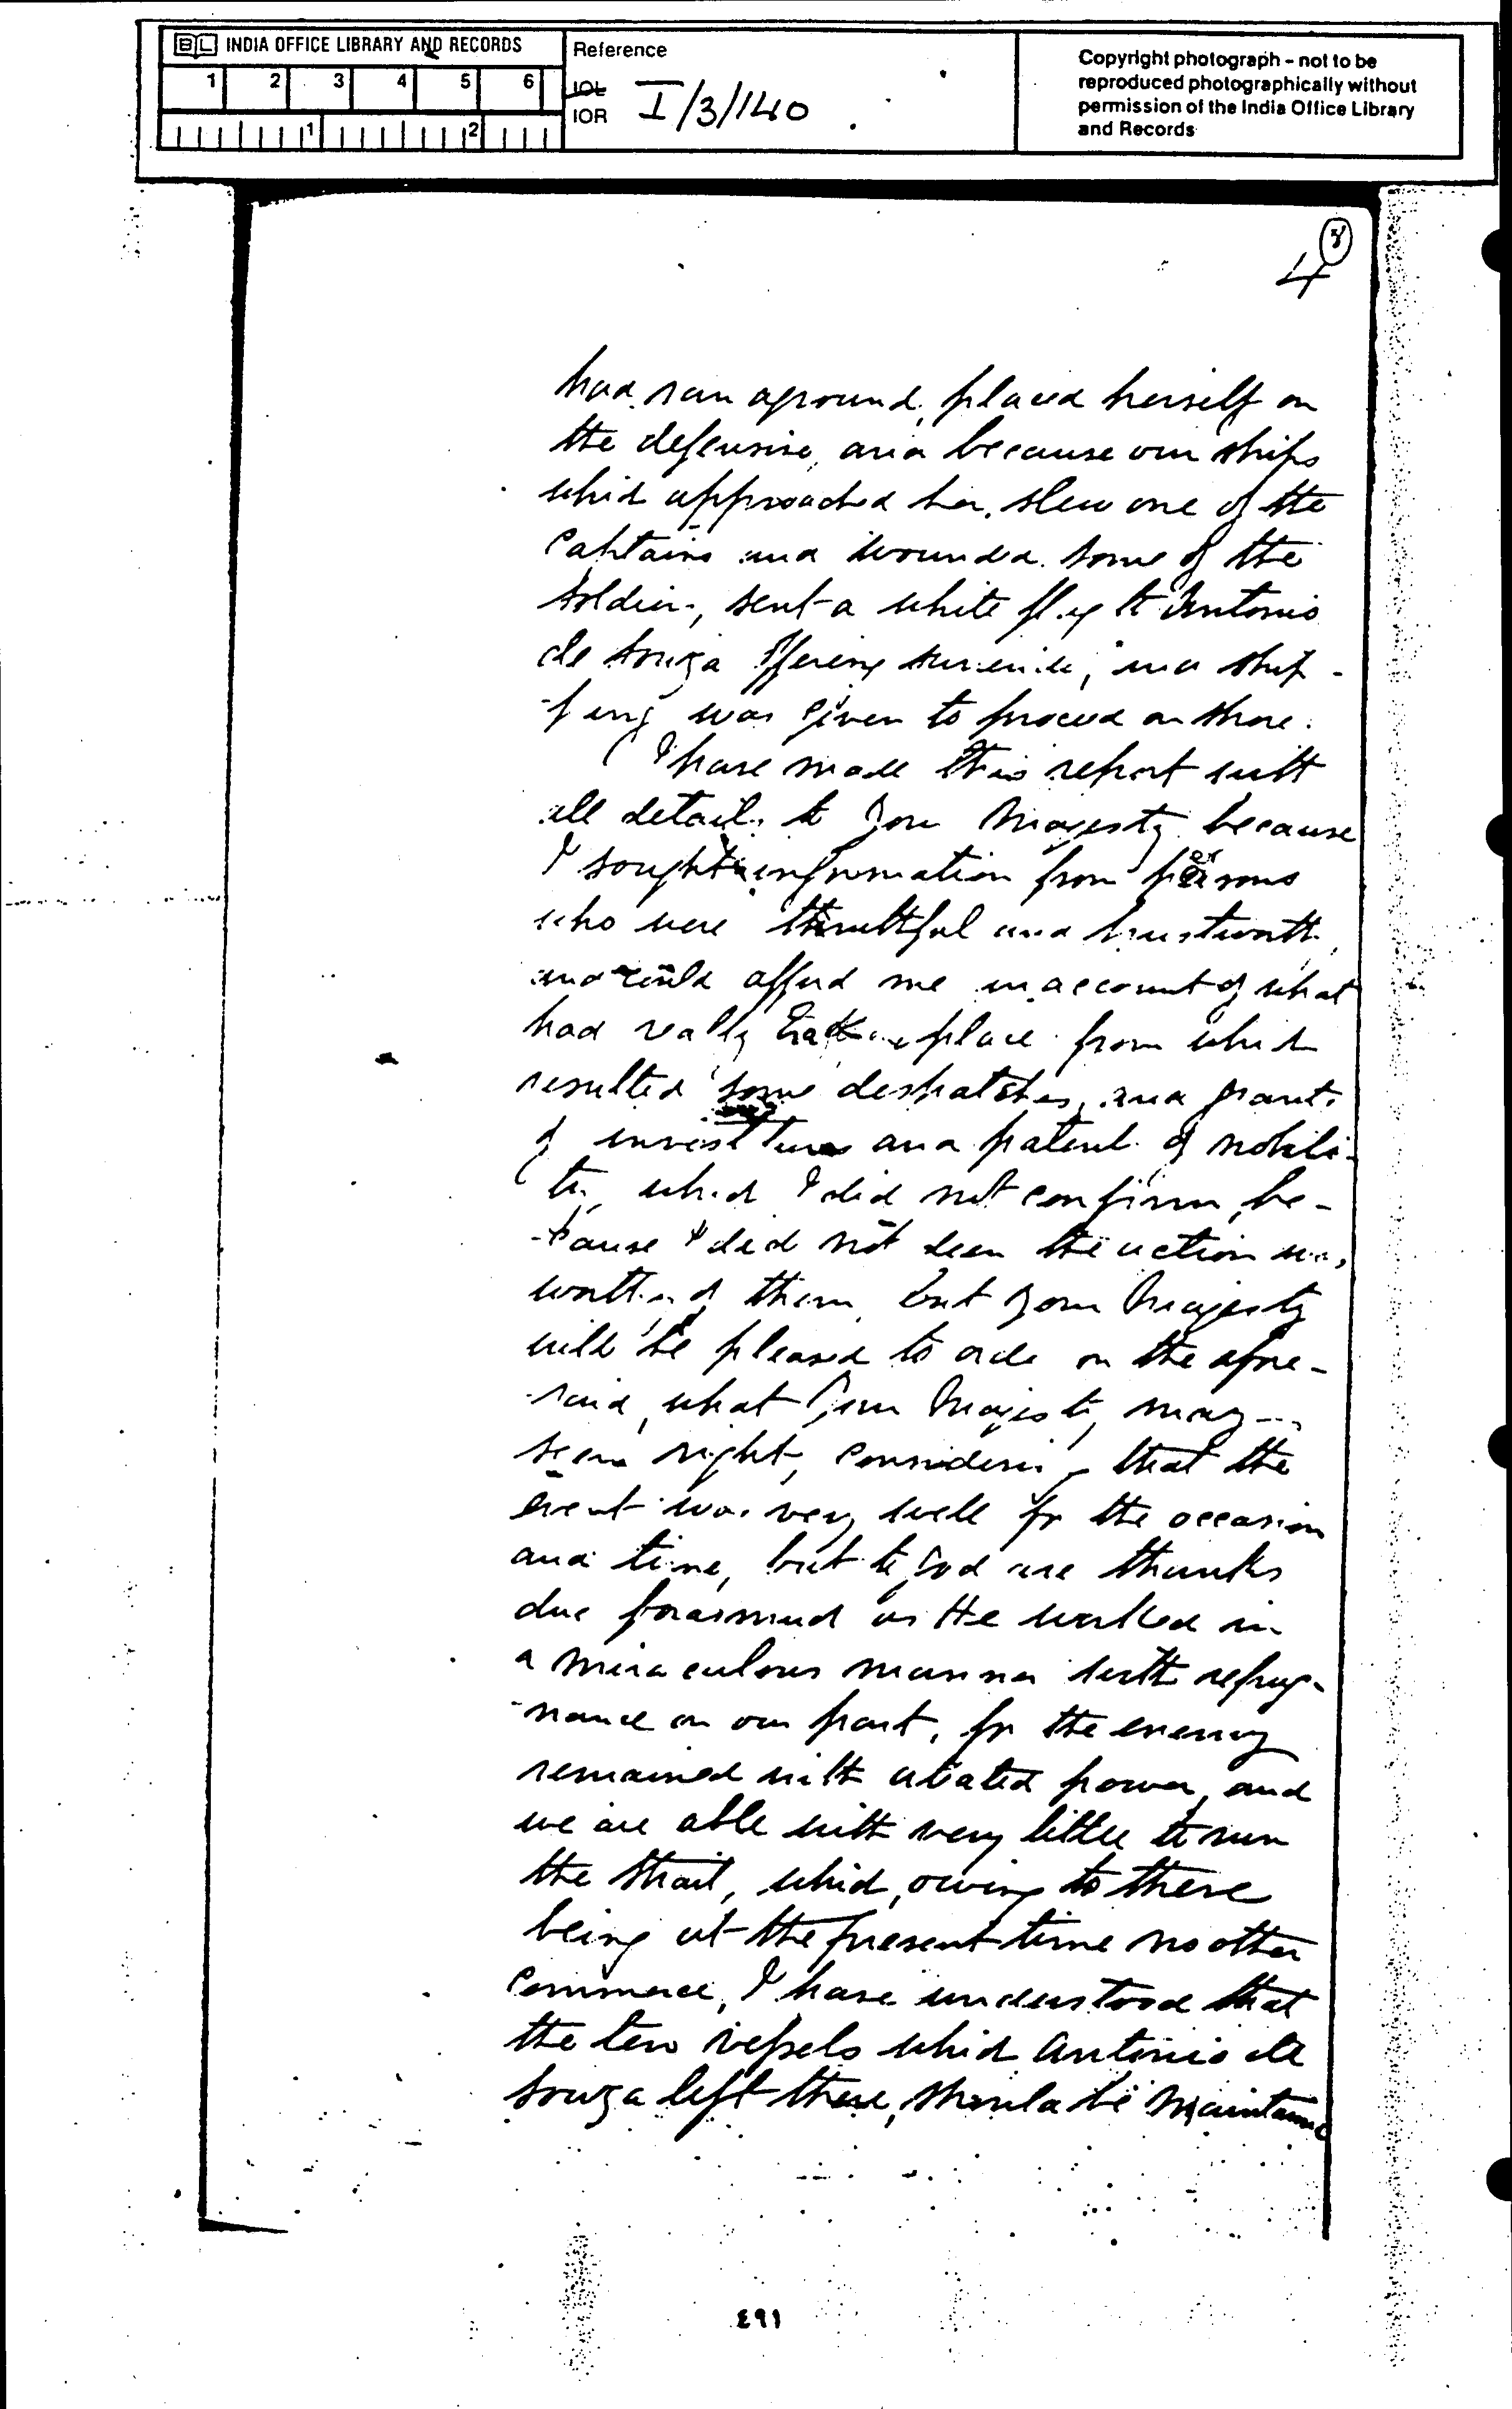 BL INDIA OFFICE LIBRARY AND RECORDS
1 2 3 4 5 6
1 2
Reference
IOL
IOR I/3/140
Copyright photograph - not to be
reproduced photographically without
permission of the India Office Library
and Records
8
4
had run aground, placed herself on
the defensive, and because our ships
which approached her, slew one of the
Captains and wounded some of the
soldiers, sent a white flag to Antonio
de Souza offering surrender, and ship-
-ping was given to proceed on shore.
I have made this report with
all details to Your Majesty because
I sought information from persons
who were thruthful and trustworthy
and could afford me an account of what
had really taken place from which
resulted some despatches, and grants
of investtures and patents of nobili-
ty, which I did not confirm, be-
-cause I did not deem the action was
worthy of them, but Your Majesty
will be pleased to order on the afore-
-said, what Your Majesty may
seem right, considering that the
event was very well for the occasion
and time, but to God are thanks
due forasmuch as He worked in
a miraculous manner with repug-
-nance on our part, for the enemy
remained with abated power, and
we are able with very little to run
the Strait, which, owing to there
being at the present time no other
Commerce, I have understood that
the ten vessels which Antonio de
Souza left there, should be maintained
٤٩١